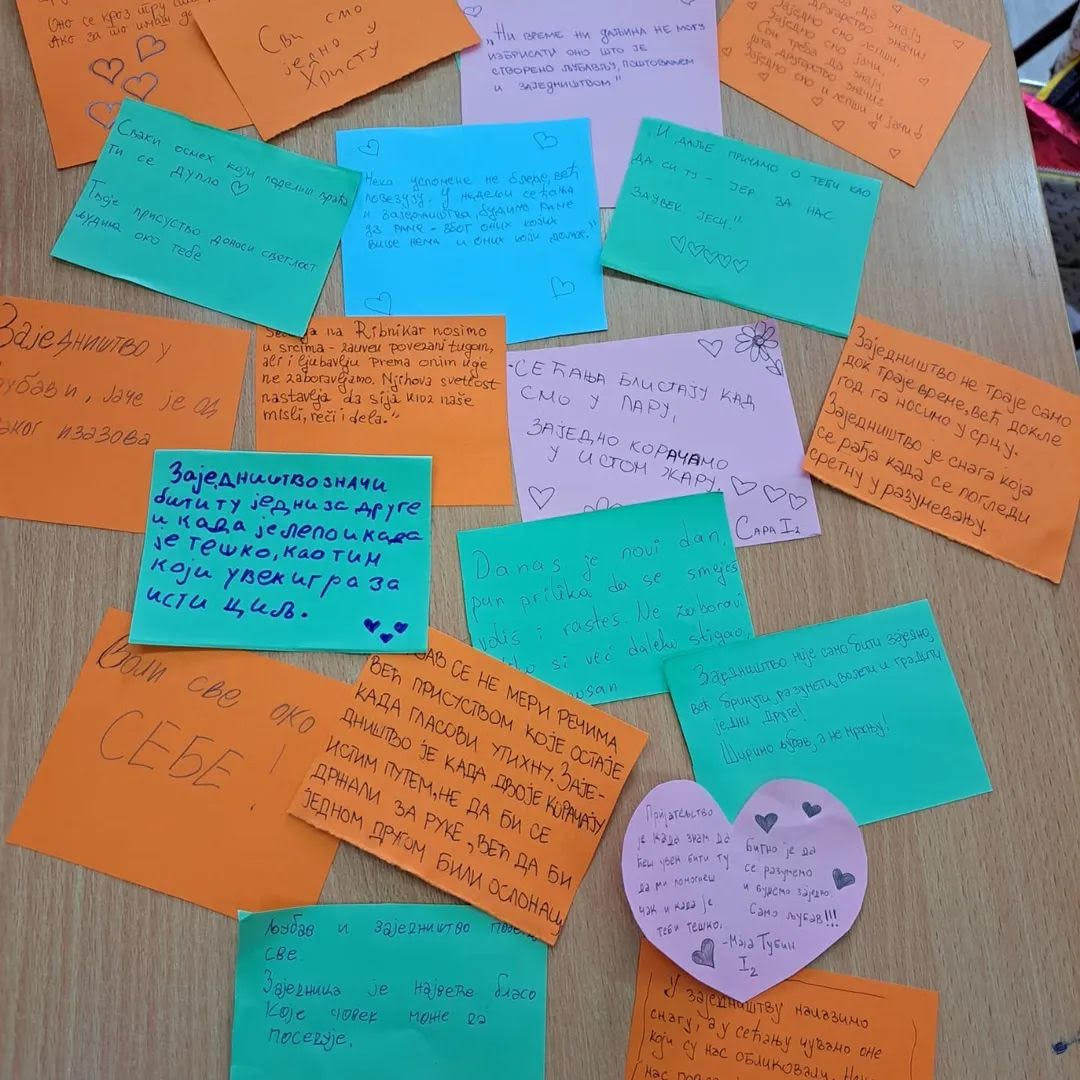 Оно се кроз игру
Ако за што имаш да
Сви смо
једно у
Христу
„Ни време ни даљина не могу
избрисати оно што је
створено љубављу, поштовањем
и заједништвом"
да знају
другарство значи
Заједно смо лепши.
Заједно смо јачи.
Сви треба да знају
шта другарство значи
Заједно смо и лепши и јачи
Сваки осмех који поделиш враћа
ти се дупло
Твоје присуство доноси светлост
људима око тебе
Нека успомене не бледе, већ
повезују. У недељи сећања
и заједништва, будимо раме
уз раме - због оних којих
више нема и оних који долазе."
„И даље причамо о теби као
да си ту - јер за нас
заувек јеси!"
Заједништво у
љубави, јаче је од
изазова
na Ribnikar nosimo
u srcima - zauvek povezani tugom,
ali i ljubavlju prema onim koje
ne zaboravljamo. Njihova svetlost
nastavlja da sija kroz naše
misli, reči i dela."
Сећања блистају кад
смо у пару,
заједно корачамо
у истом жару.
Сара I2
Заједништво не траје само
док траје време, већ докле
год га носимо у срцу.
Заједништво је снага која
се рађа када се погледи
сретну у разумевању.
Заједништво значи
бити ту једни за друге
и када је лепо и када
је тешко, као тим
који увек игра за
исти циљ.
Danas je novi dan,
pun prilika da se smeješ
i rasteš. Ne zaboravi
si već daleko stigao,
Заједништво није само бити заједно,
већ бринути, разумети, волети и градити
једни друге!
Ширимо љубав, а не мржњу!
Воли све око
СЕБЕ!
се не мери речима
већ присуством које остаје
када гласови утихну. Заје-
дништво је када двоје корачају
истим путем, не да би се
држали за руке, већ да би
једном другом били ослонац
Пријатељство
је када знам да
ћеш увек бити ту
да ми помогнеш
чак и када је
теби тешко.
Битно је да
се разумемо
и будемо заједно.
Само љубав!!!
-Маја Тубин
I2
Љубав и заједништво
све.
Заједница је највеће благо
које човек може да
поседује.
У заједништву налазимо
снагу, а у сећању чувамо оне
који су нас обликовали.
нас